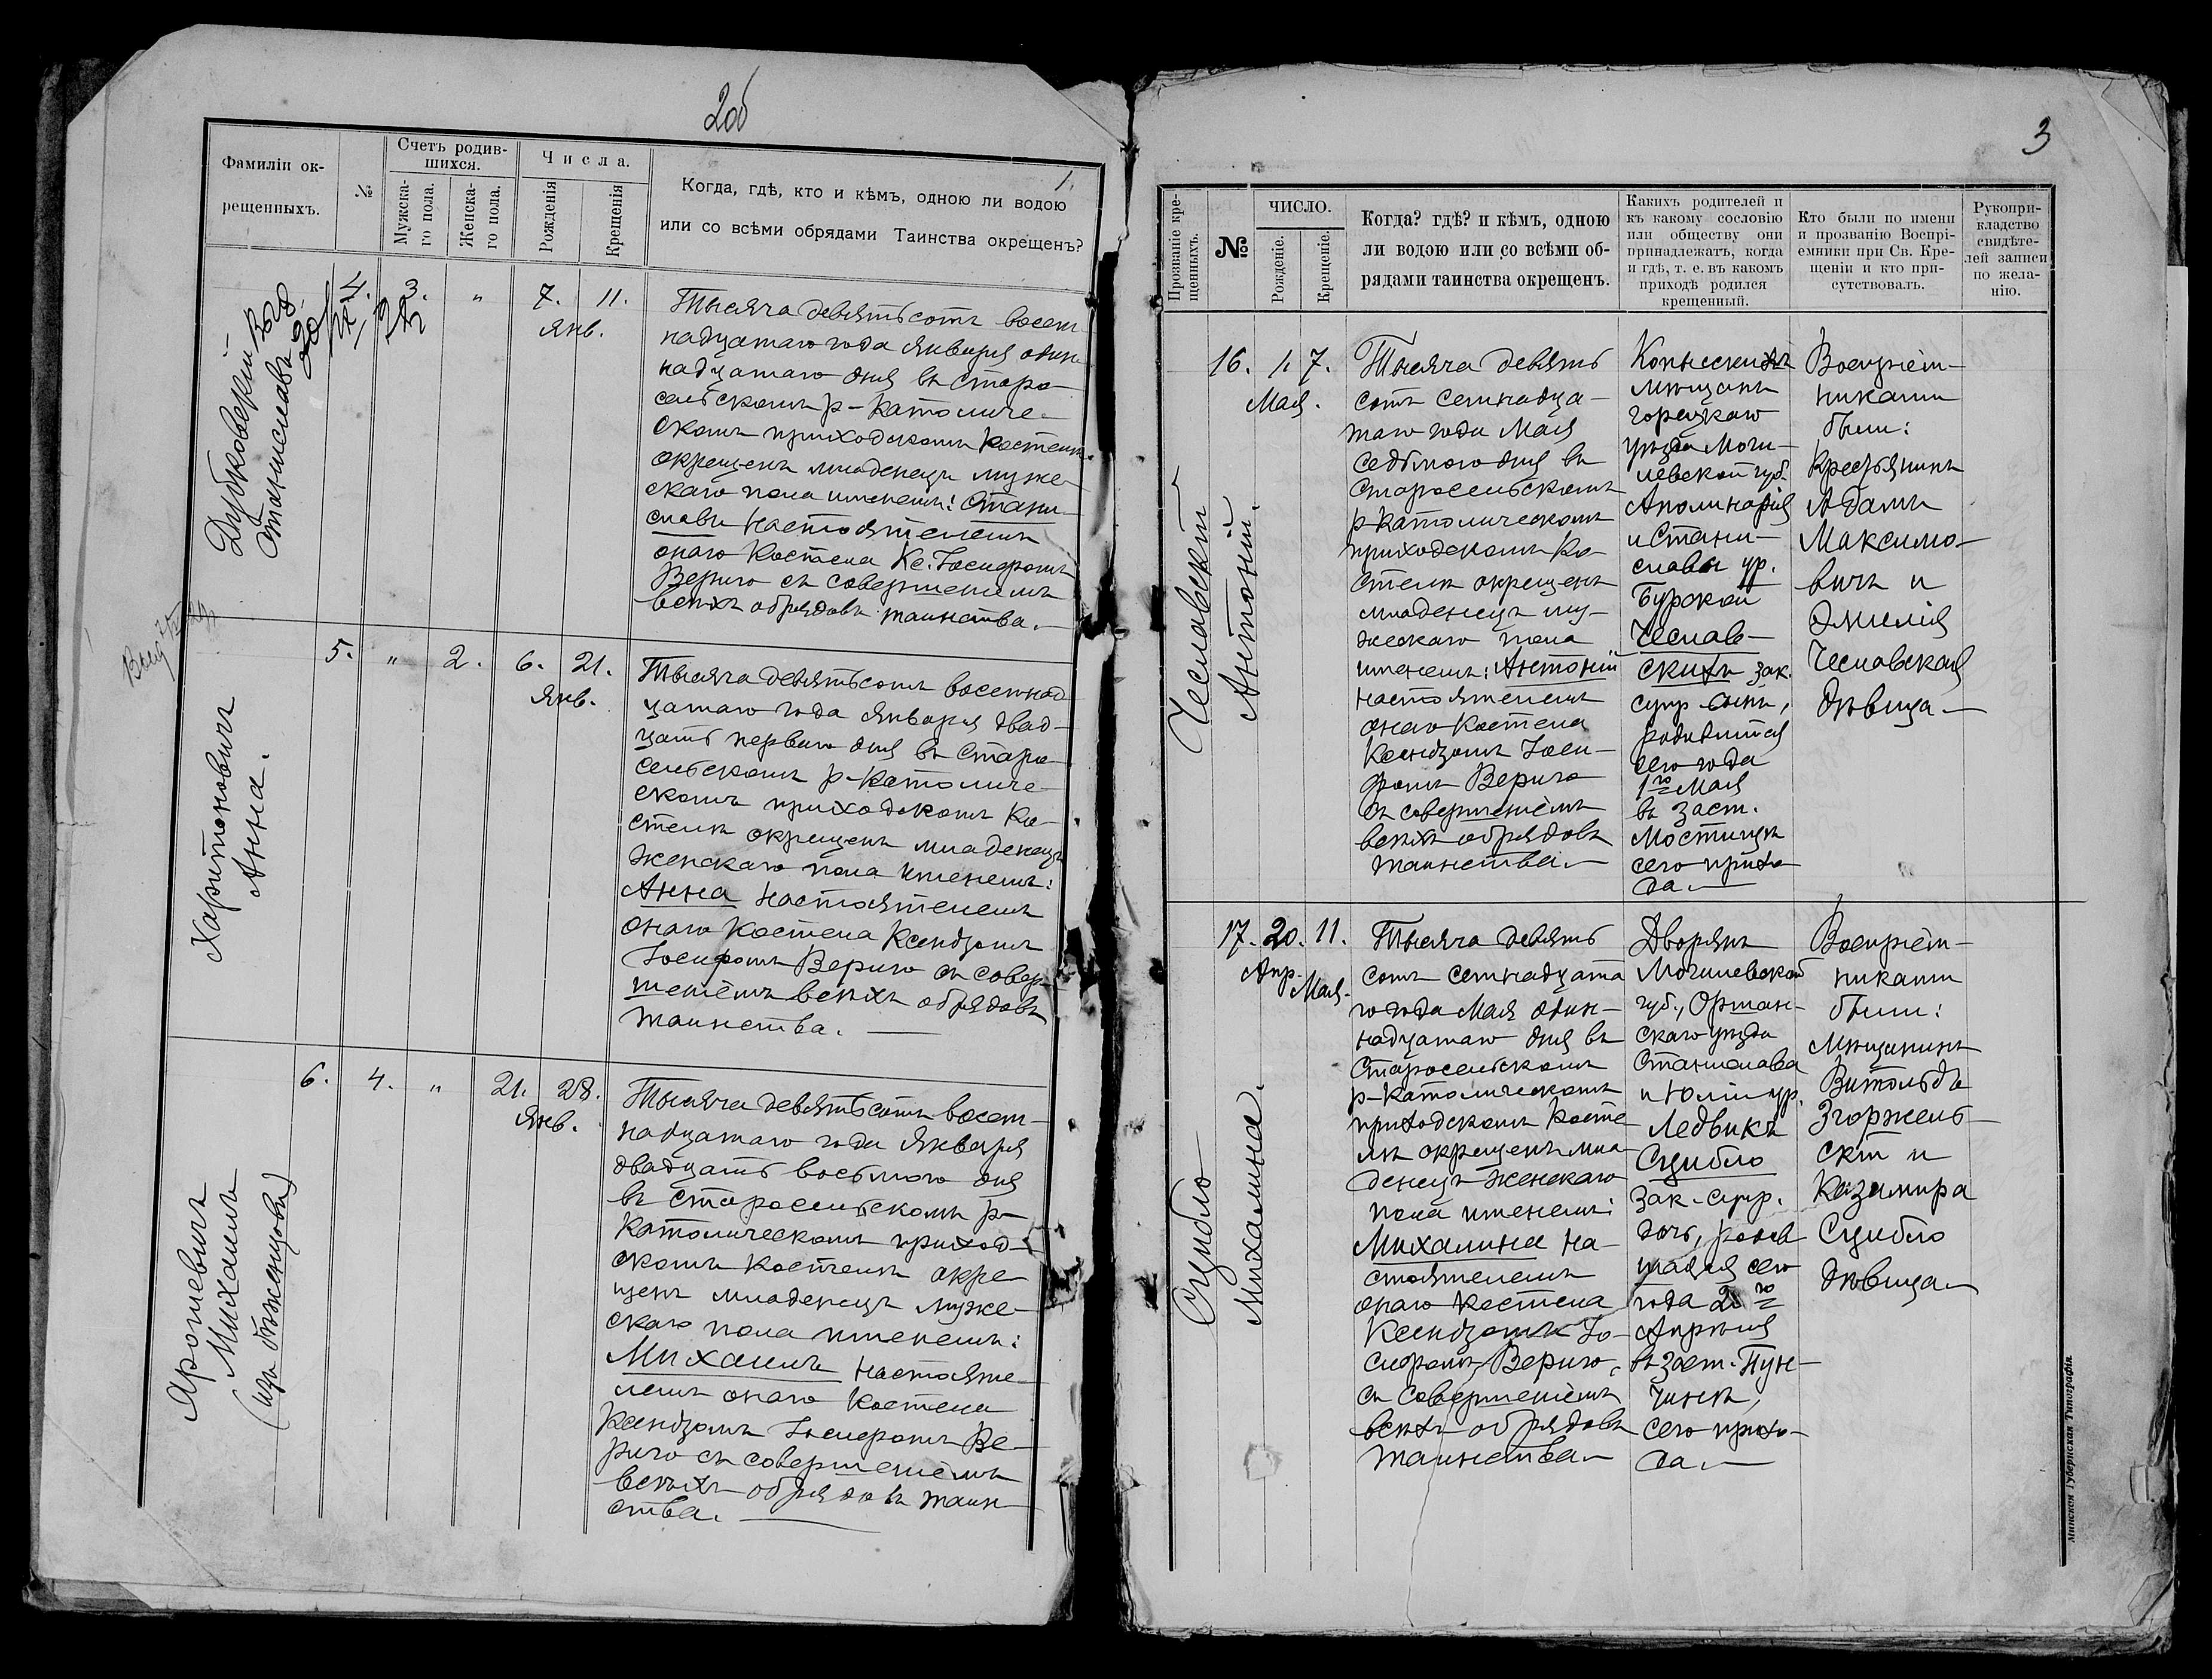 2об
Фамиліи ок-
рещенныхъ.
№
Счетъ родив-
шихся.
Мужска-
го пола.
Женска-
го пола.
Числа.
Рожденія
Крещенія
1.
Когда, гдѣ, кто и кѣмъ, одною ли водою
или со всѣми обрядами Таинства окрещенъ?
Дубковскій
Станиславъ
4.
3.
"
7.
11.
Янв.
Тысяча девятьсотъ восем-
надцатаго года Января один-
надцатаго дня въ Старо-
сельскомъ р-католиче-
скомъ приходскомъ костелѣ
окрещенъ младенецъ муже-
скаго пола именемъ: Стани-
славъ настоятелемъ
онаго Костела Кс. Іосифомъ
Верыго съ совершеніемъ
всѣхъ обрядовъ таинства.
Харитоновичъ
Анна.
5.
"
2.
6.
21.
Янв.
Тысяча девятьсотъ восемнад-
цатаго года Января двад-
цать перваго дня въ Старо-
сельскомъ р-католиче-
скомъ приходскомъ Ко-
стелѣ окрещенъ младенецъ
женскаго пола именемъ:
Анна настоятелемъ
онаго Костела Ксендзомъ
Іосифомъ Верыго съ совер-
шеніемъ всѣхъ обрядовъ
таинства.
Ярошевичъ
Михаилъ
(изъ бѣженцовъ)
6.
4.
"
21.
28.
Янв.
Тысяча девятьсотъ восем-
надцатаго года Января
двадцать восьмого дня
въ Старосельскомъ р-
католическомъ приход-
скомъ Костелѣ окре-
щенъ младенецъ муже-
скаго пола именемъ:
Михаилъ настояте-
лемъ онаго Костела
Ксендзомъ Іосифомъ Ве-
рыго съ совершеніемъ
всѣхъ обрядовъ таин-
ства.
3
Прозваніе кре-
щенныхъ.
№
ЧИСЛО.
Рожденіе.
Крещеніе.
Когда? гдѣ? и кѣмъ, одною
ли водою или со всѣми об-
рядами таинства окрещенъ.
Какихъ родителей и
къ какому сословію
или обществу они
принадлежатъ, когда
и гдѣ, т. е. въ какомъ
приходѣ родился
крещенный.
Кто были по имени
и прозванію Воспрі-
емники при Св. Кре-
щеніи и кто при-
сутствовалъ.
Рукопри-
кладство
свидѣте-
лей записи
по жела-
нію.
Чеславскій
Антоній.
16.
1.
7.
Мая.
Тысяча девять
сотъ семнадца-
таго года Мая
седьмого дня въ
Старосельскомъ
р-католическомъ
приходскомъ Ко-
стелѣ окрещенъ
младенецъ му-
жескаго пола
именемъ: Антоній
настоятелемъ
онаго Костела
Ксендзомъ Іоси-
фомъ Верыго
съ совершеніемъ
всѣхъ обрядовъ
таинства.
Копысскихъ
мѣщанъ
Горецкаго
уѣзда Моги-
левской губ.
Аполинарія
и Стани-
славы ур.
Бурской
Чеслав-
скихъ зак.
супр. сынъ,
родившійся
сего года
1го Мая
въ заст.
Мостищѣ
сего прихо-
да.
Воспріем-
никами
были:
Крестьянинъ
Адамъ
Максимо-
вичъ и
Эмилія
Чеславская
дѣвица
Сцибло
Михалина.
17.
20.
11.
Апр.
Мая.
Тысяча девять
сотъ семнадцата
го года Мая один-
надцатаго дня въ
Старосельскомъ
р-католическомъ
приходскомъ Косте-
лѣ окрещенъ мла-
денецъ женскаго
пола именемъ:
Михалина на-
стоятелемъ
онаго Костела
Ксендзомъ Іо-
сифомъ Верыго,
съ совершеніемъ
всѣхъ обрядовъ
таинства
Дворянъ
Могилевской
губ., Оршан-
скаго уѣзда
Станислава
и Юліи ур.
Ледвикъ
Сцибло
зак. супр.
дочь, родив-
шаяся сего
года 20го
Апрѣля
въ заст. Пун-
чинѣ,
сего прихо-
да.
Воспріем-
никами
были:
Мѣщанинъ
Витольдъ
Згоржель-
скій и
Казимира
Сцибло
дѣвица
Минская Губернская Типографія.